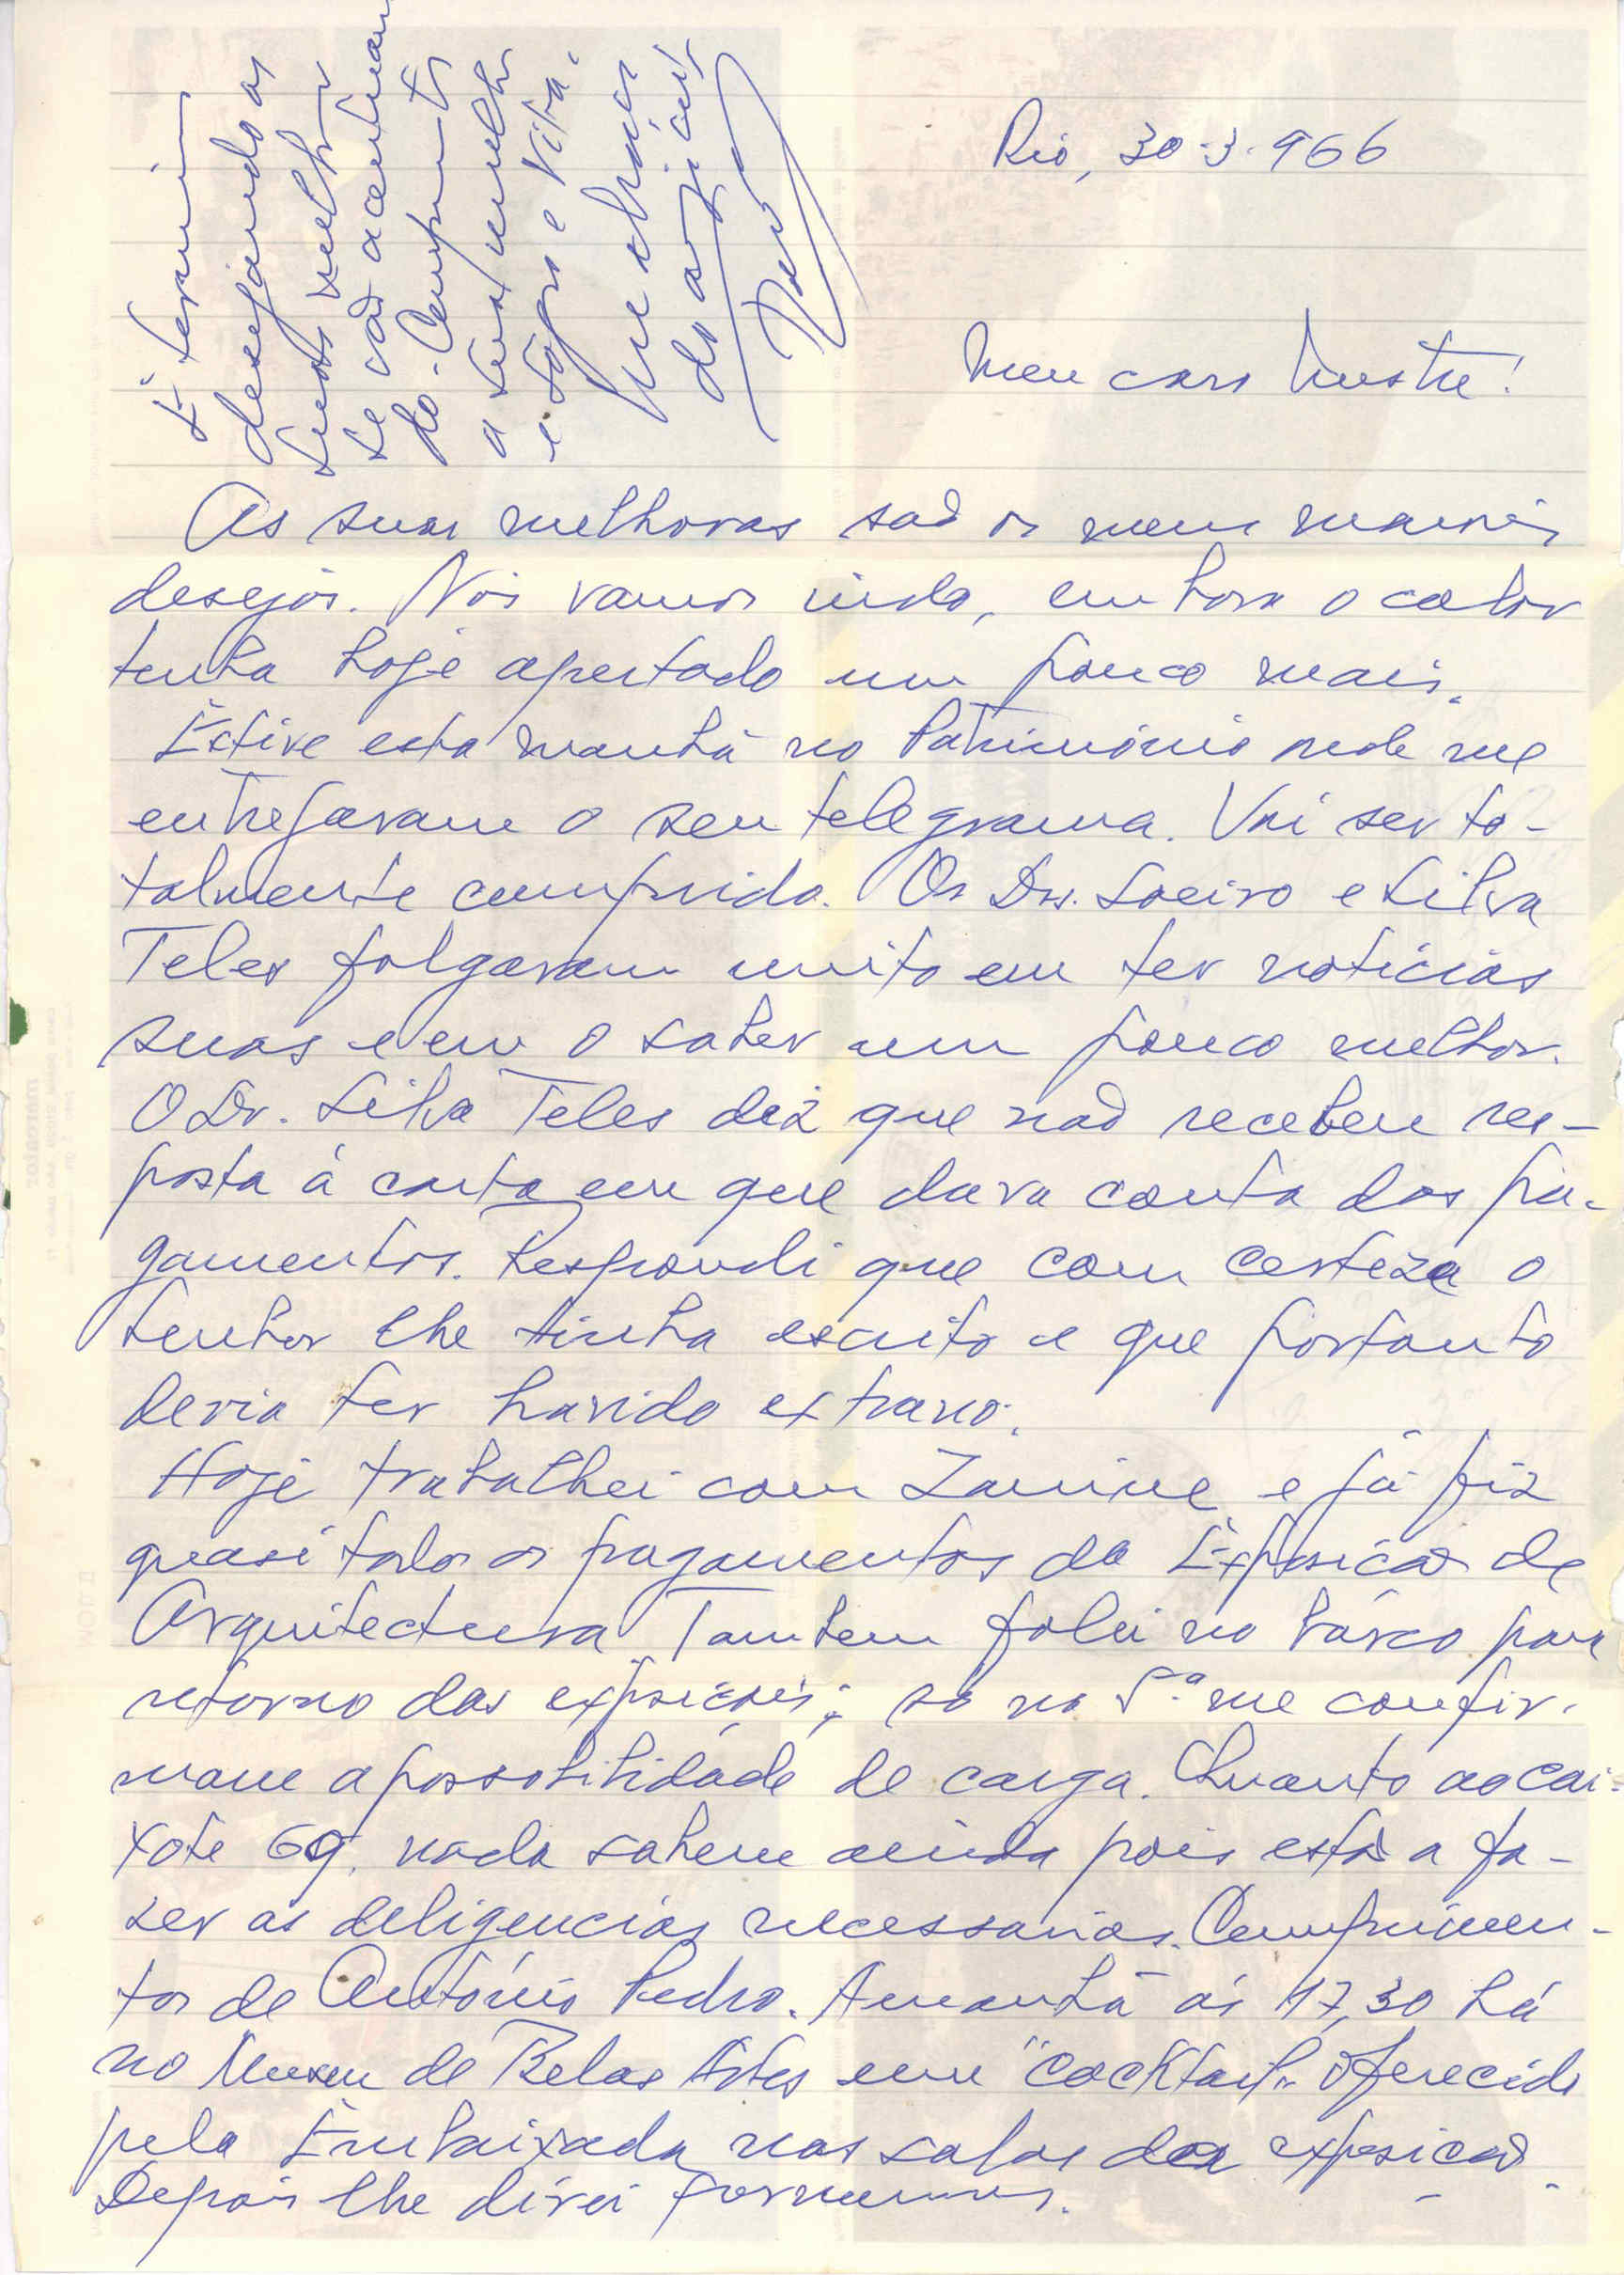 Rio, 30-3-966
Meu caro Mestre!
As suas melhoras são os meus maiores
desejos. Nós vamos indo, embora o calor
tenha hoje apertado um pouco mais.
Estive esta manhã no Património onde me
entregaram o seu telegrama. Vai ser to-
talmente cumprido. Os Drs. Soeiro e Silva
Teles folgaram muito em ter notícias
suas e em o saber um pouco melhor.
O Dr. Silva Teles diz que não recebeu res-
posta à carta em que dava conta dos pa-
gamentos. Respondi que com certeza o
Senhor lhe tinha escrito e que portanto
devia ter havido extravio.
Hoje trabalhei com Zanine e já fiz
quasi todos os pagamentos da Exposição de
Arquitectura. Tambem falei no barco para
retorno das exposições; só na 5.ª me confir-
mam a possobilidade de carga. Quanto ao cai-
xote 69, nada sabem ainda pois estão a fa-
ser as deligencias necessarias. Cumprimen-
tos de António Pedro. Amanhã às 17,30 há
no Museu de Belas Artes um "cocktail" oferecido
pela Embaixada nas salas da exposição.
Depois lhe direi
E termino
desejando as
suas melhoras
se vão acentuan
do. Cumprimentos
a sua mulher
e sogra e Rita.
Um abraço
do amigo